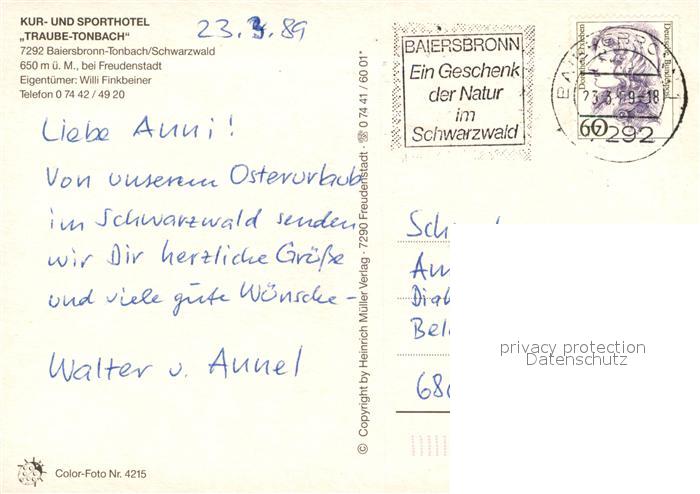 KUR- UND SPORTHOTEL
„TRAUBE-TONBACH"
7292 Baiersbronn-Tonbach/Schwarzwald
650 m ü. M., bei Freudenstadt
Eigentümer: Willi Finkbeiner
Telefon 0 74 42 / 49 20
23.3.89
Liebe Anni!
Von unserem Osterurlaub
im Schwarzwald senden
wir Dir herzliche Grüße
und viele gute Wünsche -
Walter u. Annel
Color-Foto Nr. 4215
© Copyright by Heinrich Müller Verlag · 7290 Freudenstadt · ☏ 0 74 41 / 60 01*
BAIERSBRONN
Ein Geschenk
der Natur
im
Schwarzwald
Deutsche Bundespost
60
23.3.89-18
7292
Sch
An
Dia
Bel
68
privacy protection
Datenschutz